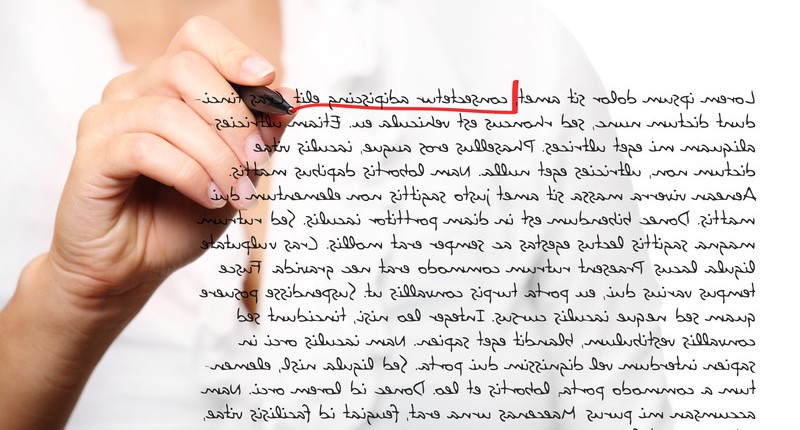 Lorem ipsum dolor sit amet, consectetuer adipiscing elit. Cras tinci-
dunt dictum nunc, sed rhoncus est vehicula eu. Etiam ultricies
aliquam mi eget ultrices. Phasellus eros augue, iaculis vitae
dictum non, ultricies eget nulla. Nam lobortis dapibus mattis.
Aenean viverra massa sit amet justo sagittis non elementum dui
mattis. Donec bibendum est in diam porttitor iaculis. Sed rutrum
magna sagittis lectus egestas ac semper erat mollis. Cras vulputate
ligula lacus. Praesent rutrum commodo erat nec gravida. Fusce
tempus varius dui, eu porta turpis convallis ut. Suspendisse posuere
quam sed neque iaculis cursus. Integer leo nisi, tincidunt sed
convallis vestibulum, blandit eget sapien. Nam iaculis orci in
sapien interdum vel dignissim dui porta. Sed ligula nisl, elemen-
tum a commodo porta, lobortis et leo. Donec id lorem orci. Nam
accumsan mi purus. Maecenas urna erat, feugiat id facilisis vitae,